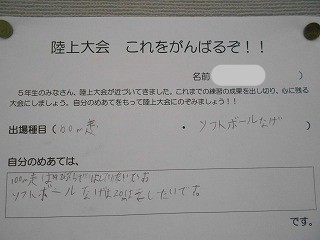 陸上大会　これをがんばるぞ！！
名前（　　　　　）
５年生のみなさん、陸上大会が近づいてきました。これまでの練習の成果を出し切り、心に残る
大会にしましょう。自分のめあてをもって陸上大会にのぞみましょう！！
出場種目（100m走　・　ソフトボールなげ　）
自分のめあては、
100m走は
ソフトボールなげは したいです
です。